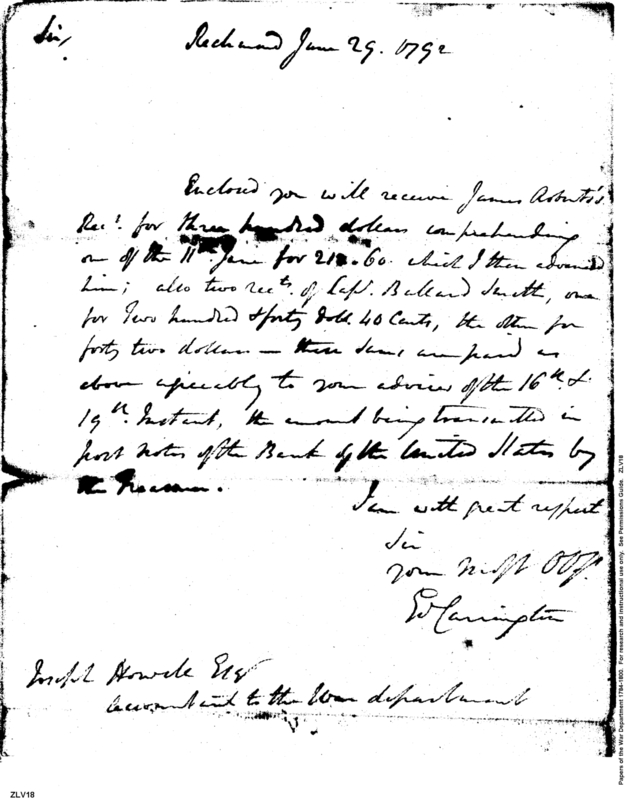 Sir,
Richmond June 29. 1792
Enclosed you will receive James Roberts's
Rect. for three hundred dollars comprehending
one of the 11th June for 212.60. which I then advanced
him; also two rects. of Capt. Ballard Smith, one
for Two hundred & forty Doll. 40 Cents, the other for
forty two dollars — these sums are paid as
above agreeably to your advices of the 16th. &
19th. Instant, the amount being transmitted in
post notes of the Bank of the United States by
the Treasurer.
I am with great respect
Sir
your Most Obt.
Ed Carrington
Joseph Howell Esqr
Accountant to the War department
ZLV18
Papers of the War Department 1784-1800. For research and instructional use only. See Permissions Guide. ZLV18